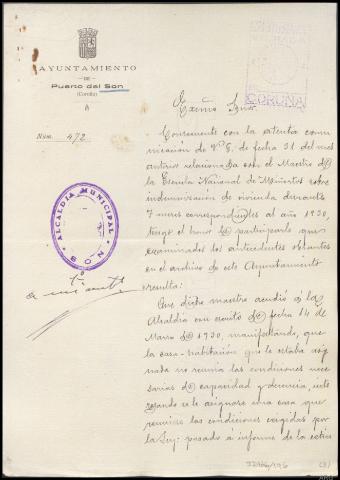 AYUNTAMIENTO
DE
Puerto del Son
(Coruña)
Núm. 472
CORUÑA
ALCALDIA MUNICIPAL
SON
Excmo Señor
Consecuente con la atenta comu
nicación de V.E. de fecha 31 del mes
anterior relacionada con el Maestro de
la Escuela Nacional de Miñortos sobre
indemnización de vivienda durante
7 meses correspondientes al año 1930,
tengo el honor de participarle que
examinados los antecedentes obrantes
en el archivo de este Ayuntamiento
resulta:
Que dicho maestro acudió a la
Alcaldía con escrito de fecha 14 de
Marzo de 1930, manifestando, que
la casa-habitación que le estaba asig
nada no reunía las condiciones nece
sarias de capacidad y decencia, inte
resando se le asignara una casa que
reuniese las condiciones exigidas por
la Ley; pasado a informe de la extin